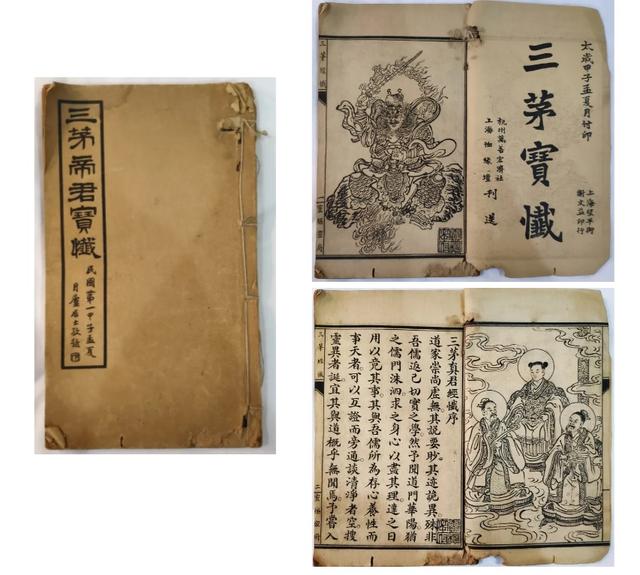 三茅帝君寶懺
民國第一甲子孟夏
月廬居士敬題
太歲甲子孟夏月付印
三茅寶懺
上海望平街
謝文益印行
杭州萬善宏濟社
上海仙緣壇 刊送
三茅經懺
三茅真君經懺序
道家崇尚虛無其說要眇其迹詭異殊非
吾儒返己切實之學然予聞道門華陽猶
之儒門洙泗求之身心以盡其理達之日
用以竟其事其與吾儒所為存心養性而
事天者可以互證而旁通談清淨者空搜
靈異者誕宜其與道概乎無聞焉予嘗入
三茅經懺